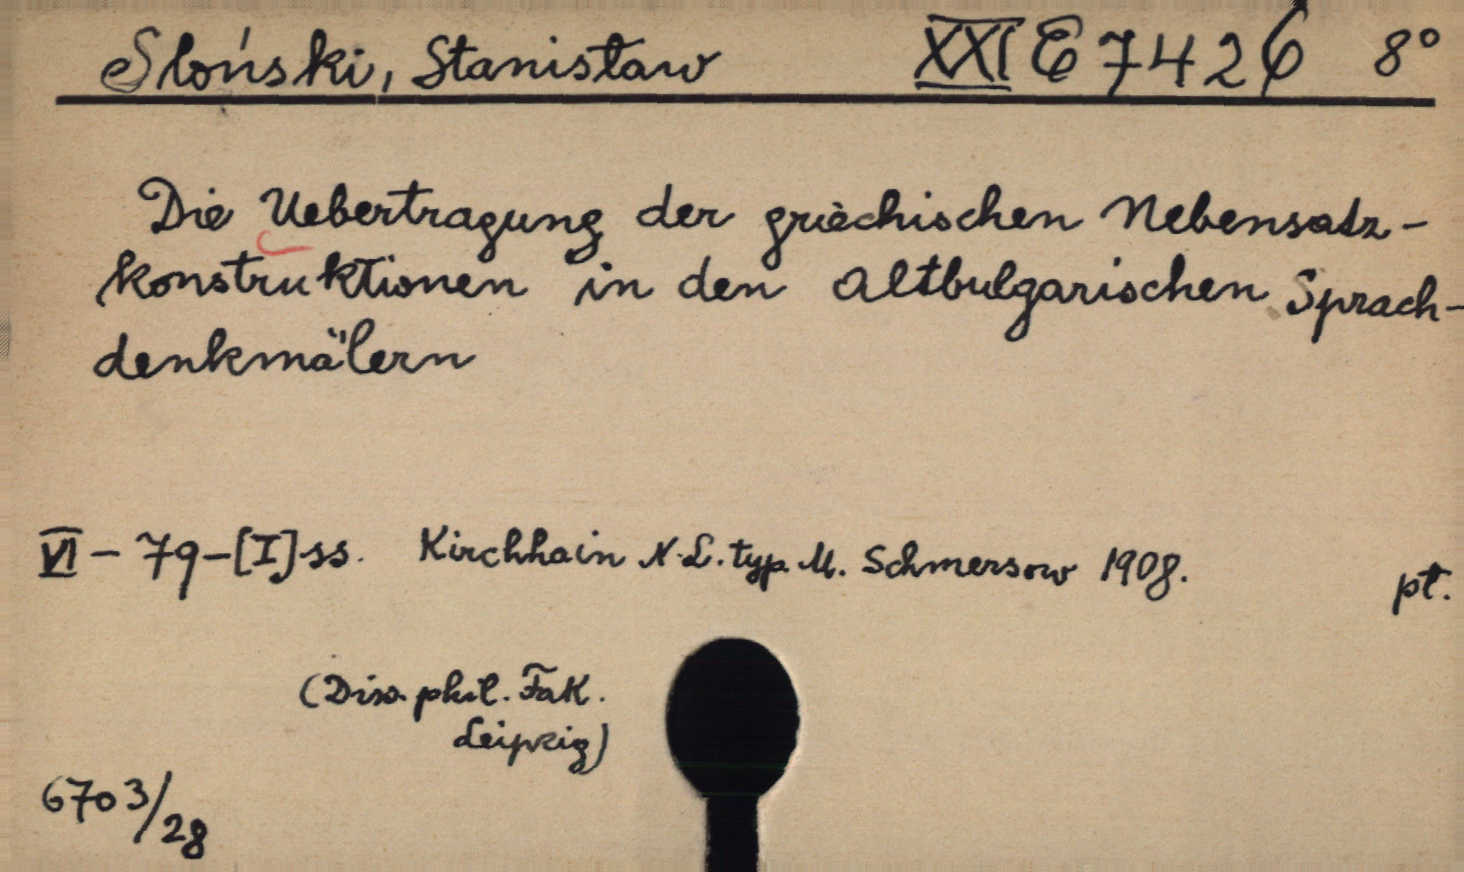 Słoński, Stanisław XXI E 7426 8°
Die Uebertragung der griechischen Nebensatz-
konstruktionen in den altbulgarischen Sprach-
denkmälern
VI – 79 – [I] ss. Kirchhain N.L. typ. M. Schmersow 1908. pt.
(Diss. phil. Fak.
Leipzig)
6703/28